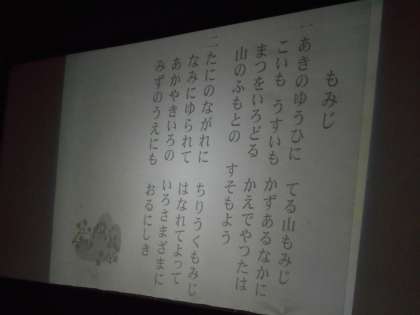 もみじ
一 あきのゆうひに てる山もみじ
こいも うすいも かずあるなかに
まつをいろどる かえでやつたは
山のふもとの すそもよう
二 たにのながれに ちりうくもみじ
なみにゆられて はなれてよって
あかやきいろの いろさまざまに
みずのうえにも おるにしき